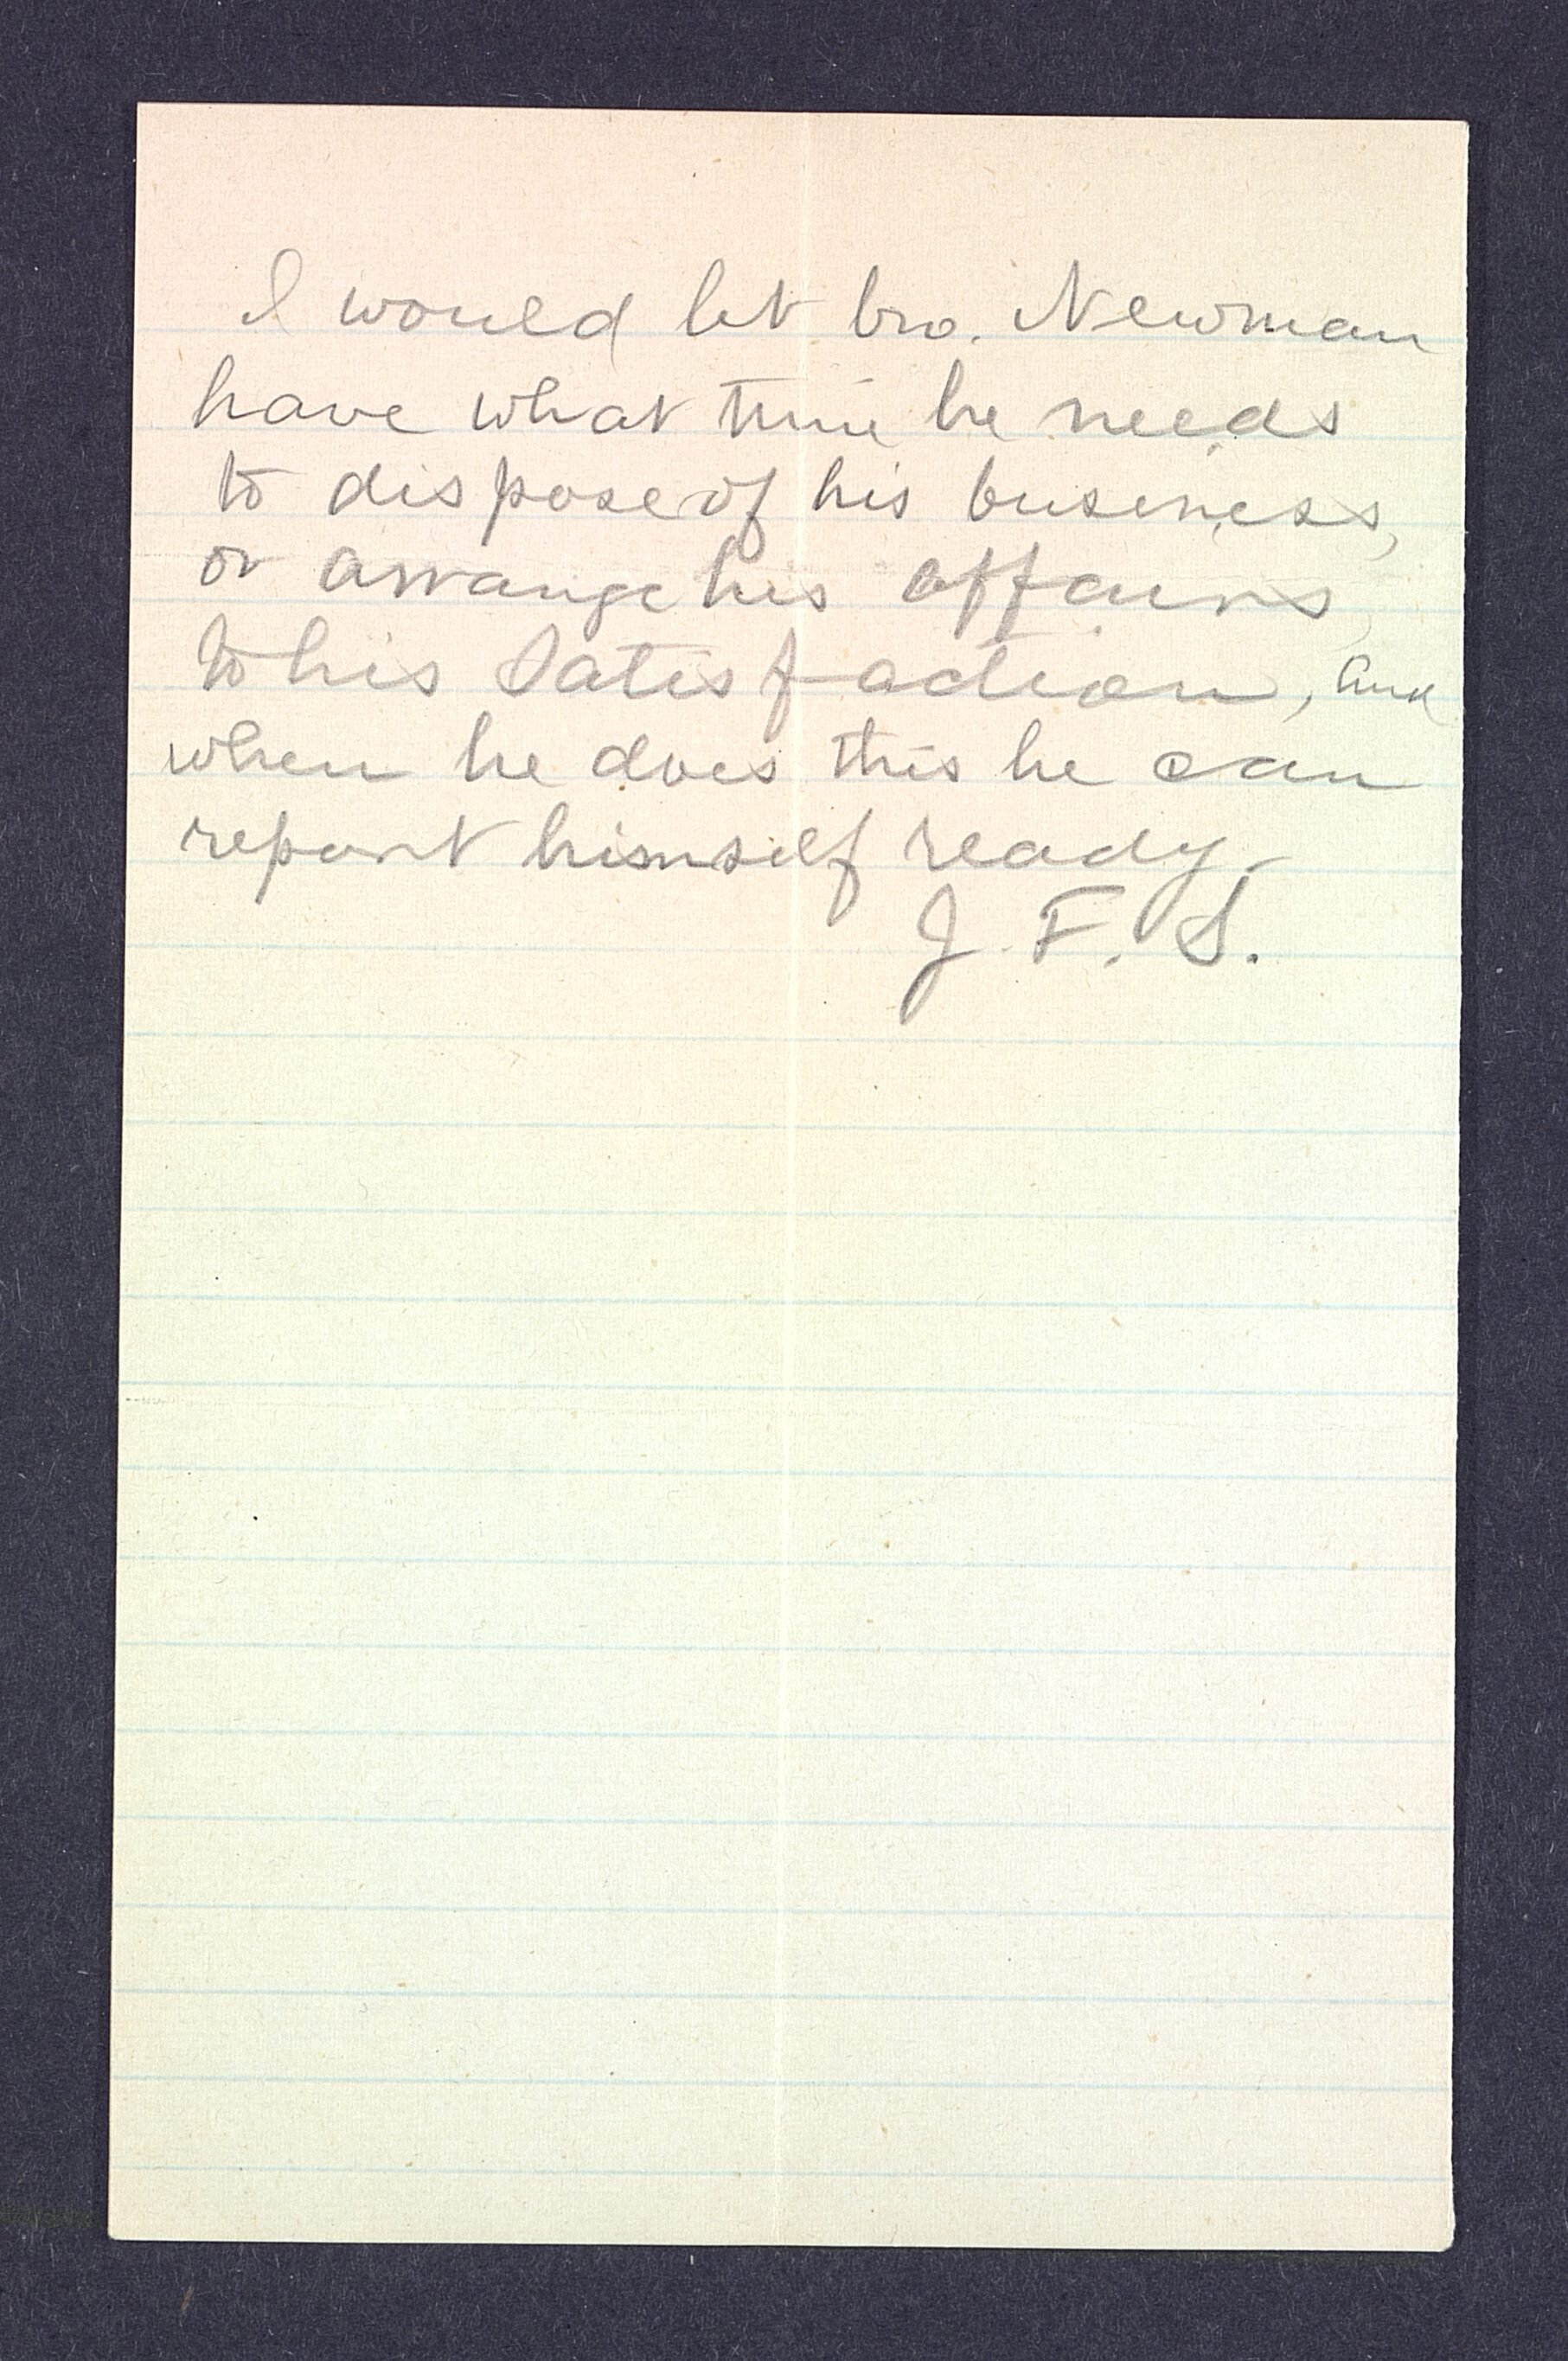 I would let bro. Newman
have what time he needs
to dispose of his business,
or arrange his affairs
to his satisfaction, and
when he does this he can
report himself ready.
J. F. S.